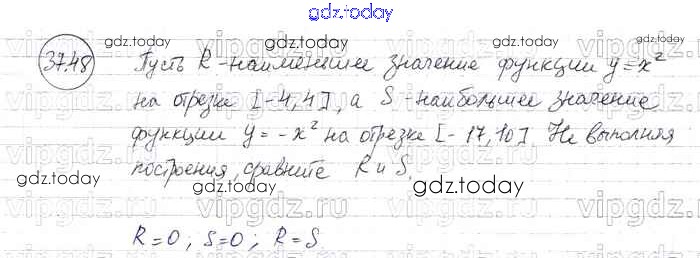 gdz.today
37.48
Пусть R-наименьшее значение функции y=x²
на отрезке [-4,4], а S-наибольшее значение
функции y=-x² на отрезке [-17,10]. Не выполняя
построения, сравните R и S.
R=0; S=0; R=S.
gdz.today
gdz.today
gdz.today
gdz.today
gdz.today
gdz.today
gdz.today
gdz.today
vipgdz.ru
vipgdz.ru
vipgdz.ru
vipgdz.ru